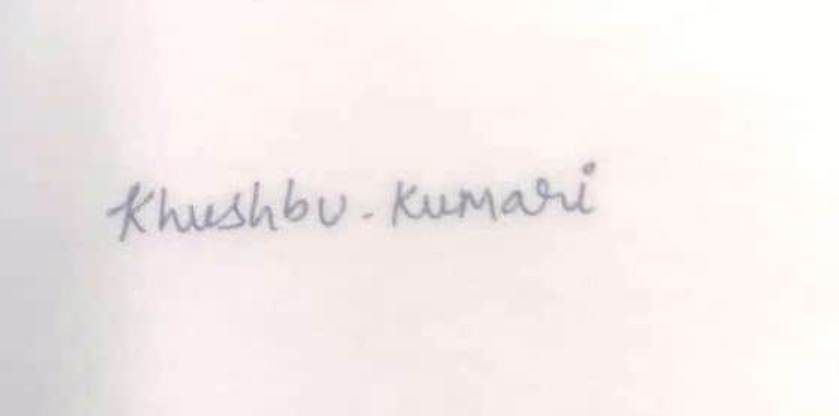 Khushbu - Kumari